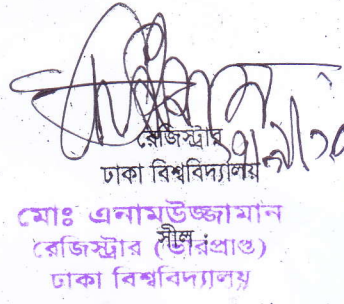 রেজিস্ট্রার
ঢাকা বিশ্ববিদ্যালয়
মোঃ এনামউজ্জামান
সীল :
রেজিস্ট্রার (ভারপ্রাপ্ত)
ঢাকা বিশ্ববিদ্যালয়